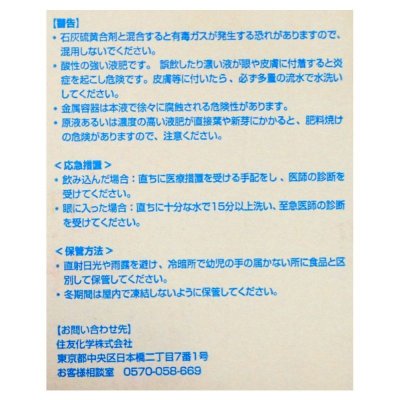 【警告】
・石灰硫黄合剤と混合すると有毒ガスが発生する恐れがありますので、
混用しないでください。
・酸性の強い液肥です。誤飲したり濃い液が眼や皮膚に付着すると炎
症を起こし危険です。皮膚等に付いたら、必ず多量の流水で水洗い
してください。
・金属容器は本液で徐々に腐蝕される危険性があります。
・原液あるいは濃度の高い液肥が直接葉や新芽にかかると、肥料焼け
の危険がありますので、注意ください。
<応急措置>
・飲み込んだ場合：直ちに医療措置を受ける手配をし、医師の診断を
受けてください。
・眼に入った場合：直ちに十分な水で15分以上洗い、至急医師の診断
を受けてください。
<保管方法>
・直射日光や雨露を避け、冷暗所で幼児の手の届かない所に食品と区
別して保管してください。
・冬期間は屋内で凍結しないように保管してください。
【お問い合わせ先】
住友化学株式会社
東京都中央区日本橋二丁目7番1号
お客様相談室 0570-058-669